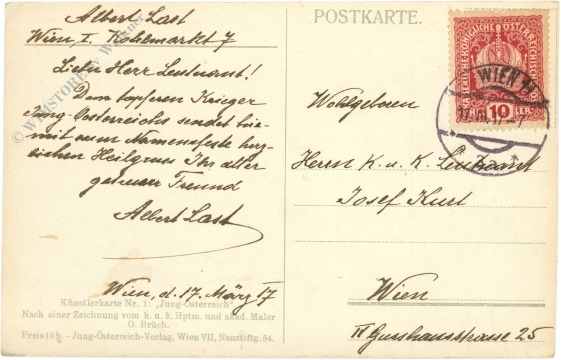 Albert Last
Wien, I. Kohlmarkt 7
Lieber Herr Leutnant!
Dem tapferen Krieger
Jung-Österreichs sendet hie-
mit zum Namensfeste herz-
lichen Heilgruss Ihr alter
getreuer Freund
Albert Last
Wien, d. 17. März 17
Künstlerkarte Nr. 1: "Jung-Österreich"
Nach einer Zeichnung vom k. u. k. Hptm. und akad. Maler
O. Brüch.
Preis 10 h. - Jung-Österreich-Verlag, Wien VII, Neustiftg. 54.
POSTKARTE.
KAISERLICHE KÖNIGLICHE ÖSTERREICHISCHE
10
WIEN
Wohlgeboren
Herrn K. u. K. Leutnant
Josef Kurt
Wien
Gusshausstrasse 25